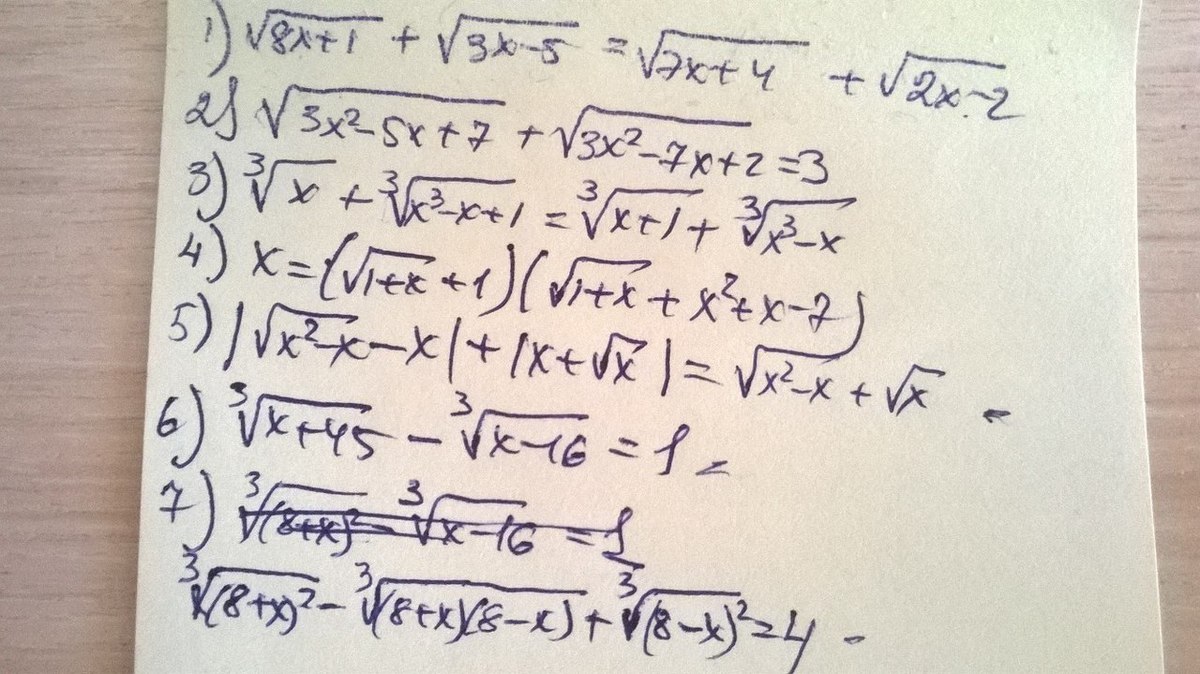 1) √(8x+1) + √(3x-5) = √(7x+4) + √(2x-2)
2) √(3x²-5x+7) + √(3x²-7x+2) = 3
3) ∛x + ∛(x³-x+1) = ∛(x+1) + ∛(x³-x)
4) x = (√(1+x) + 1)(√(1+x) + x² + x - 7)
5) |√(x²-x) - x| + |x + √x| = √(x²-x) + √x
6) ∛(x+45) - ∛(x-16) = 1
7) ∛((8+x)²) - ∛(x-16) = 1
∛((8+x)²) - ∛((8+x)(8-x)) + ∛((8-x)²) = 4